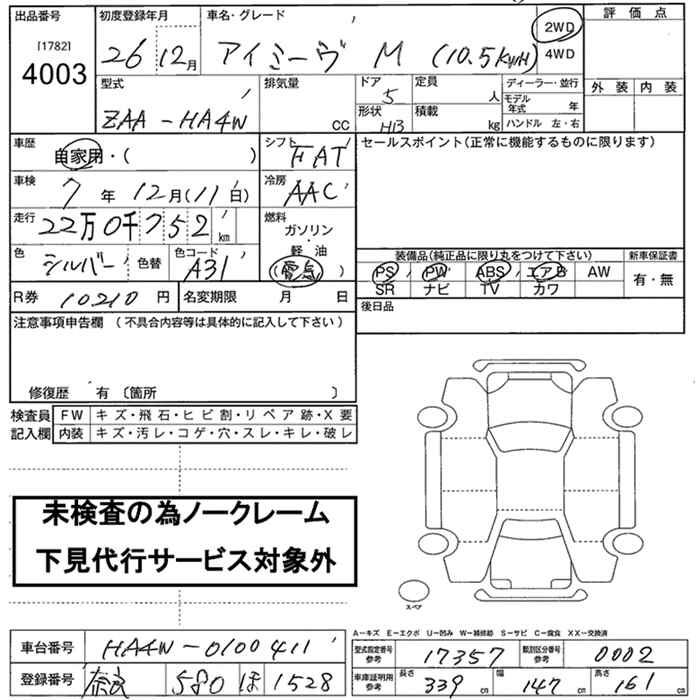 出品番号
[1782]
4003
初度登録年月
26 12月
車名・グレード
アイミーヴ M (10.5kWH)
2WD
4WD
評価点
外装 内装
型式
ZAA-HA4W
排気量
CC
ドア
5
形状
HB
定員
人
積載
kg
ディーラー・並行
モデル年式 年
ハンドル 左・右
車歴
自家用・( )
シフト
FAT
セールスポイント(正常に機能するものに限ります)
車検
7年12月(11日)
冷房
AAC
走行
22万0千752km
燃料
ガソリン
・
軽油
(電気)
色
シルバー
色替
色コード
A31
装備品(純正品に限り丸をつけて下さい)
PS PW ABS エアB AW
SR ナビ TV カワ
新車保証書
有・無
R券 10210円
名変期限 月 日
後日品
注意事項申告欄 (不具合内容等は具体的に記入して下さい)
修復歴 有〔箇所 〕
検査員記入欄
FW キズ・飛石・ヒビ割・リペア跡・X要
内装 キズ・汚レ・コゲ・穴・スレ・キレ・破レ
未検査の為ノークレーム
下見代行サービス対象外
スペア
A−キズ E−エクボ U−凹み W−補修跡 S−サビ C−腐食 XX−交換済
車台番号 HA4W-0100411
登録番号 奈良 580 ほ 1528
型式指定番号参考 17357
類別区分番号参考 0002
車庫証明用参考
長さ 339cm
幅 147cm
高さ 161cm